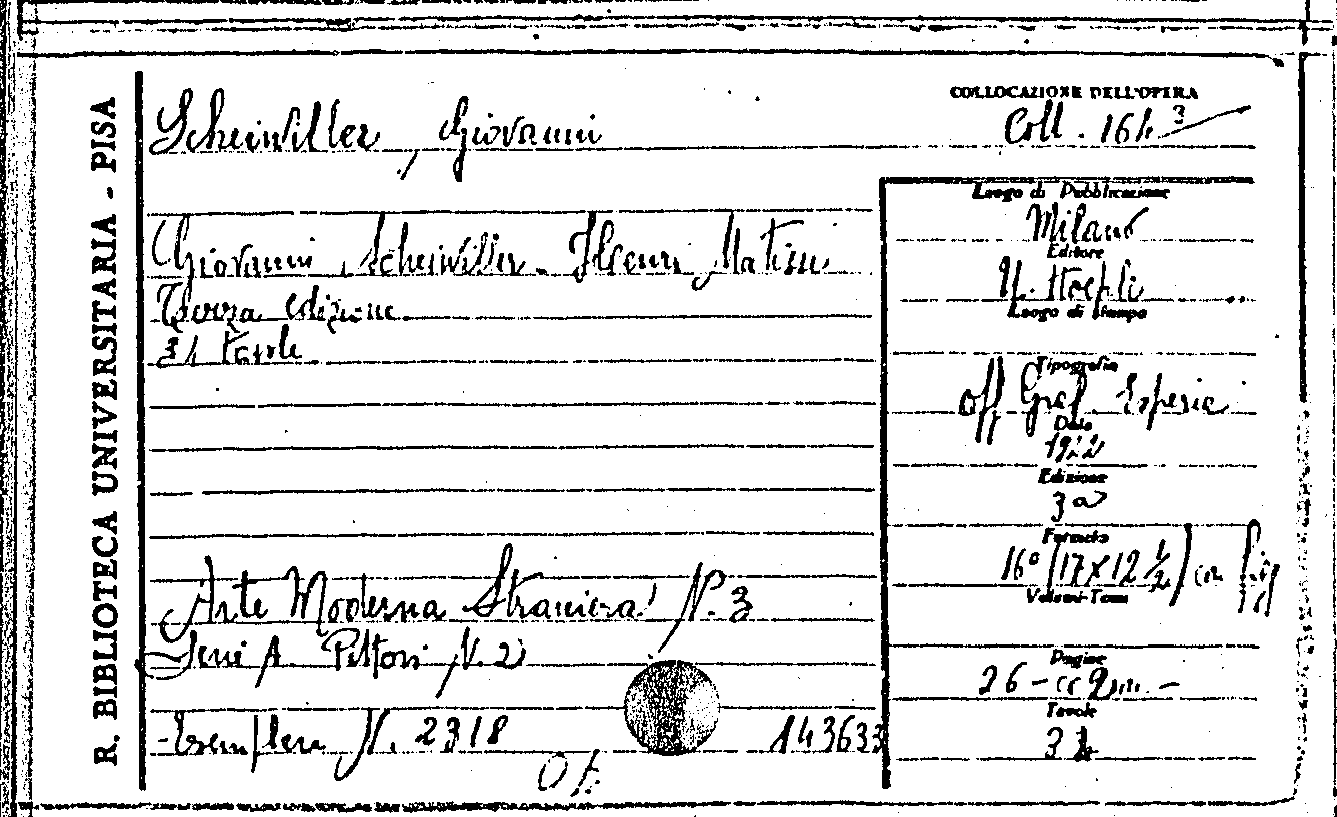 R. BIBLIOTECA UNIVERSITARIA - PISA
Scheiwiller, Giovanni
COLLOCAZIONE DELL'OPERA
Coll. 164 3
Giovanni Scheiwiller. Henri Matisse
Terza edizione.
Luogo di Pubblicazione
Milano
Editore
U. Hoepli
Luogo di stampa
Tipografia
Off. Graf. Esperia
Data
Edizione
3a
Formato
16° (17x12 1/2) con fig
Volumi-Tomi
Arte Moderna Straniera N. 3
Serie A. Pittori N. 2
Pagine
26
Tavole
Esemplare N. 2318
143633